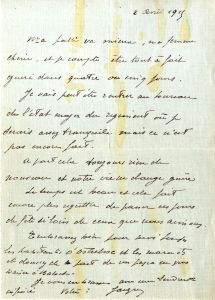 2 Avril 1915
Ma patte va mieux, ma femme
chérie, et je compte être tout à fait
guéri dans quatre ou cinq jours.
Je vais peut être rentrer au bureau
de l'état major du régiment où je
serais assez tranquille mais ce n'est
pas encore fait.
A part cela toujours rien de
nouveau et notre vie ne change guère
Le temps est beau et cela fait
encore plus regretter de passer ces jours
de fête si loin de ceux que nous aimons
Embrasse bien pour moi tous
les habitants d' et les
et donne de la part de un
Je vous embrasse avec tendresse
Votre